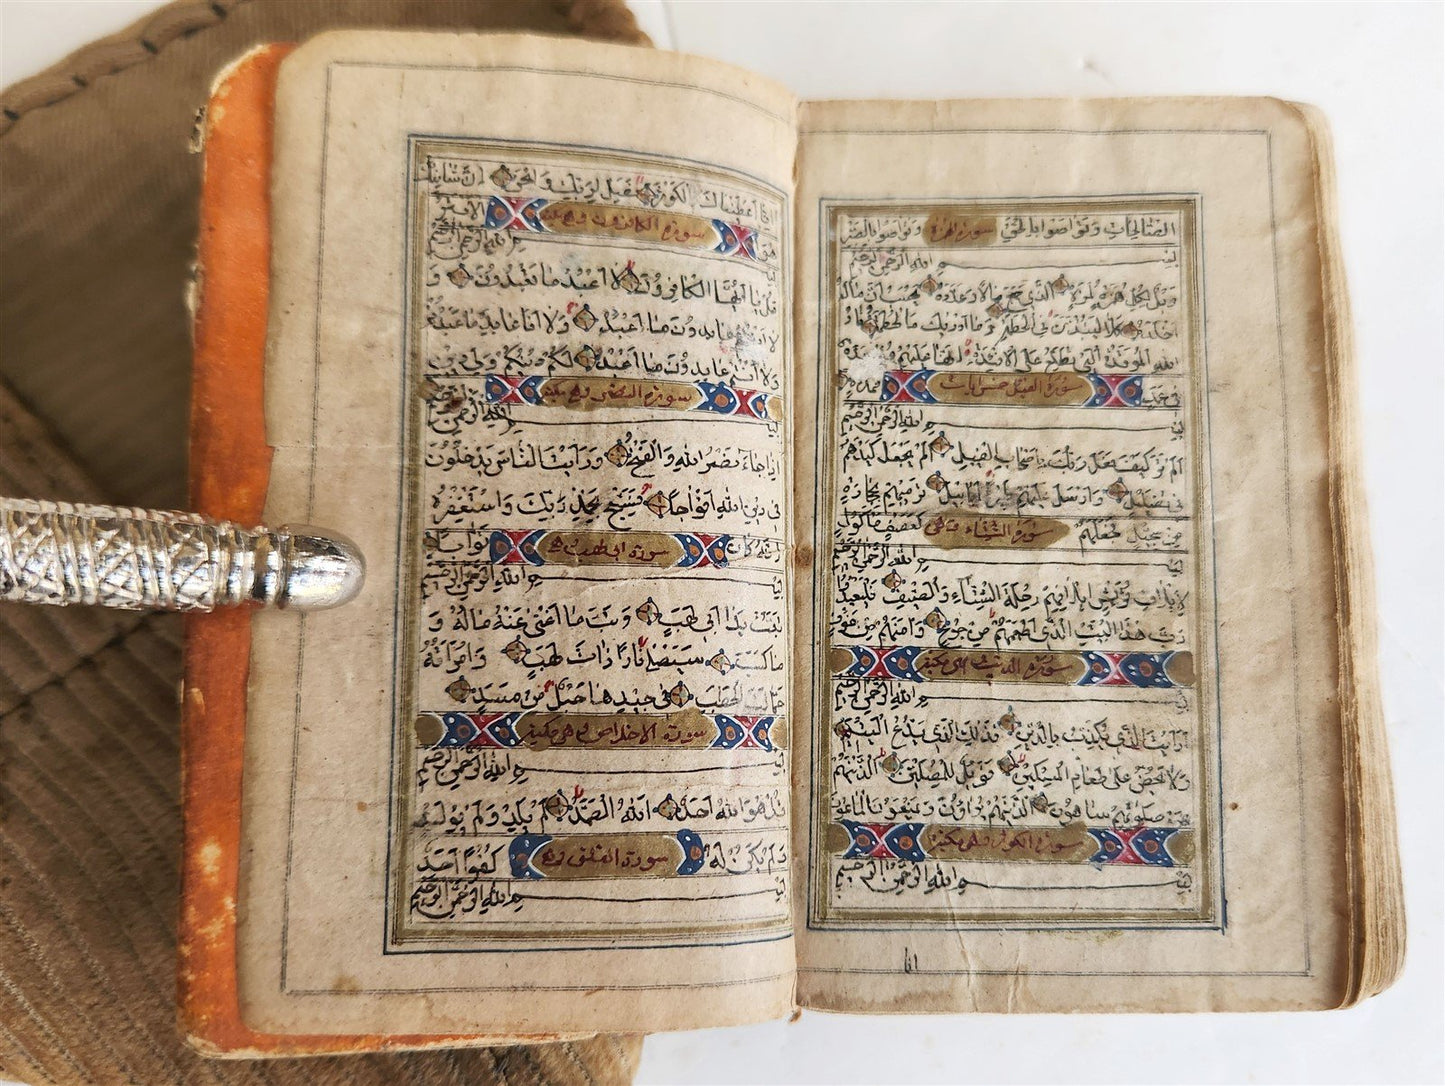 الصالحات وتواصوا بالحق سورة الهمزة وتواصوا بالصبر
بسم الله الرحمن الرحيم
ويل لكل همزة لمزة الذي جمع مالا وعدده يحسب ان ماله
اخلده كلا لينبذن في الحطمة وما ادريك ما الحطمة نار
الله الموقدة التي تطلع على الافئدة انها عليهم مؤصدة
في عمد سورة الفيل خمس ايات ممددة
بسم الله الرحمن الرحيم
الم تر كيف فعل ربك باصحاب الفيل الم يجعل كيدهم
في تضليل وارسل عليهم طيرا ابابيل ترميهم بحجارة
من سجيل فجعلهم سورة الشتاء كعصف ماكول
بسم الله الرحمن الرحيم
لايلاف قريش ايلافهم رحلة الشتاء والصيف فليعبدوا
رب هذا البيت الذي اطعمهم من جوع وامنهم من خوف
سورة الدين مكية
بسم الله الرحمن الرحيم
ارايت الذي يكذب بالدين فذلك الذي يدع اليتيم
ولا يحض على طعام المسكين فويل للمصلين الذينهم
عن صلوتهم ساهون الذينهم يراؤن ويمنعون الماعون
سورة الكوثر وهي مكية
بسم الله الرحمن الرحيم
انا اعطيناك الكوثر فصل لربك وانحر ان شانئك
هو سورة الكافرون وهي مكية الابتر
بسم الله الرحمن الرحيم
قل يا ايها الكافرون لا اعبد ما تعبدون و
لا انتم عابدون ما اعبد ولا انا عابد ما عبدتم
ولا انتم عابدون ما اعبد لكم دينكم ولي دين
سورة النصر وهي مكية
بسم الله الرحمن الرحيم
اذا جاء نصر الله والفتح ورايت الناس يدخلون
في دين الله افواجا فسبح بحمد ربك واستغفره
انه كان سورة ابي لهب توابا
بسم الله الرحمن الرحيم
تبت يدا ابي لهب وتب ما اغنى عنه ماله و
ما كسب سيصلى نارا ذات لهب وامراته
حمالة الحطب في جيدها حبل من مسد
سورة الاخلاص وهي مكية
بسم الله الرحمن الرحيم
قل هو الله احد الله الصمد لم يلد ولم يولد
ولم يكن له سورة الفلق كفوا احد
بسم الله الرحمن الرحيم